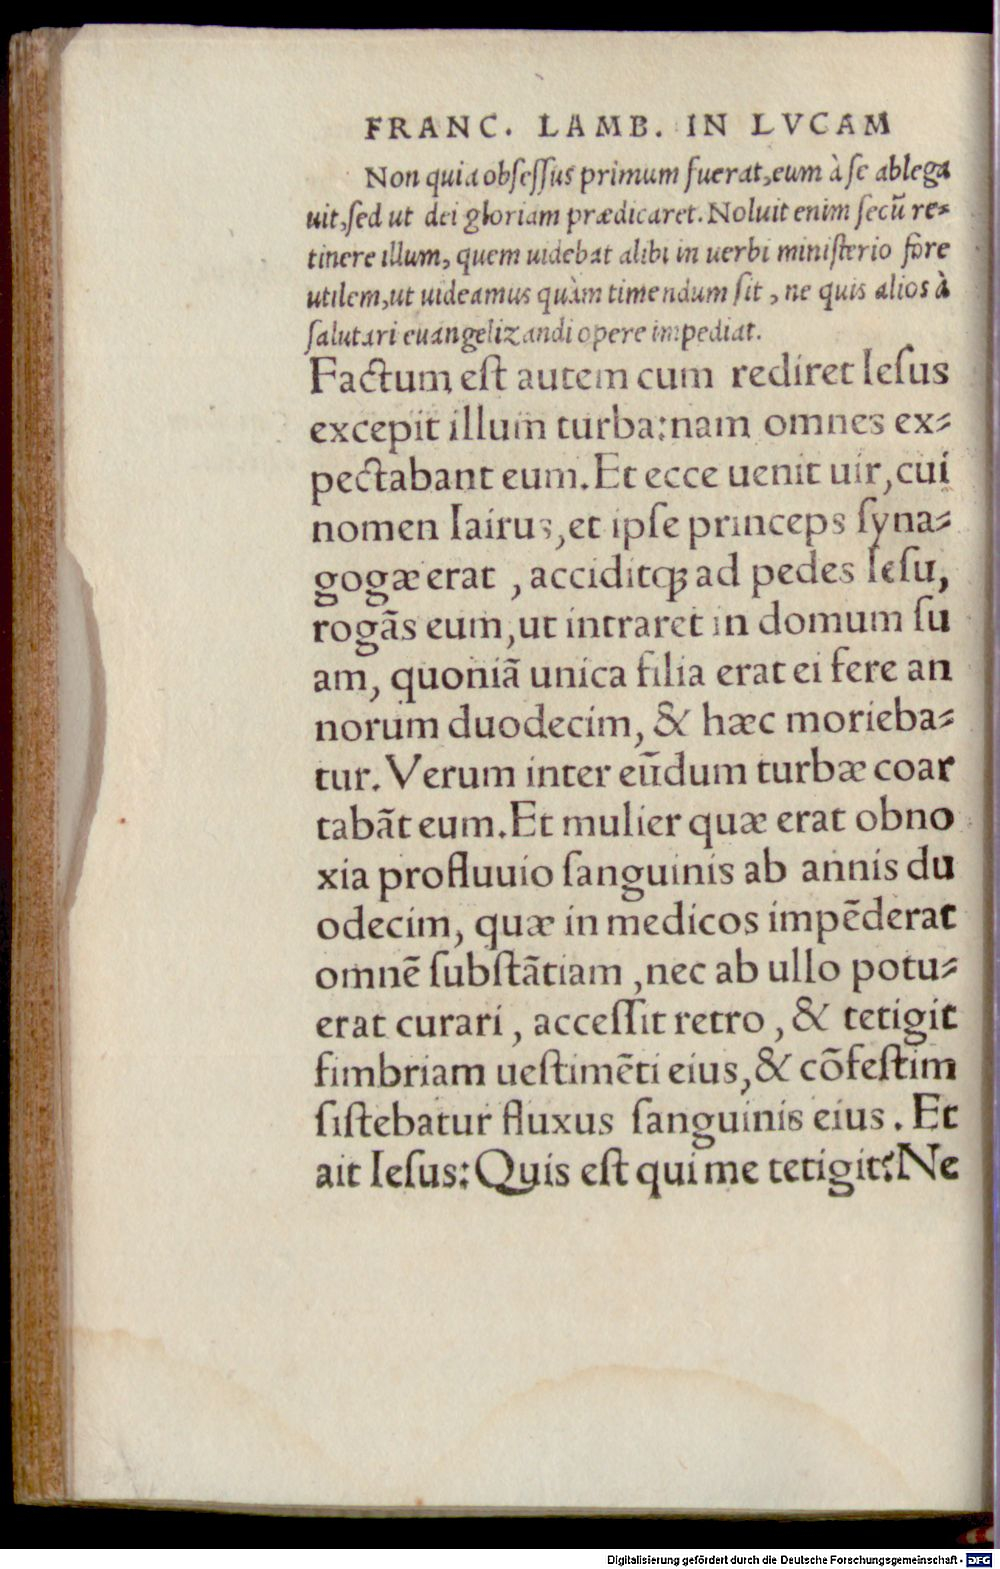 FRANC. LAMB. IN LVCAM
Non quia obſeſſus primum fuerat, eum à ſe ablega
uit, ſed ut dei gloriam prædicaret. Noluit enim ſecū re⸗
tinere illum, quem uidebat alibi in uerbi miniſterio fore
utilem, ut uideamus quàm timendum ſit, ne quis alios à
ſalutari euangelizandi opere impediat.
Factum eſt autem cum rediret Ieſus
excepit illum turba: nam omnes ex⸗
pectabant eum. Et ecce uenit uir, cui
nomen Iairus, et ipſe princeps ſyna⸗
gogæ erat, acciditq; ad pedes Ieſu,
rogãs eum, ut intraret in domum ſu
am, quoniã unica filia erat ei fere an
norum duodecim, & hæc morieba⸗
tur. Verum inter eūdum turbæ coar
tabãt eum. Et mulier quæ erat obno
xia profluuio ſanguinis ab annis du
odecim, quæ in medicos impẽderat
omnẽ ſubſtãtiam, nec ab ullo potu⸗
erat curari, acceſſit retro, & tetigit
fimbriam ueſtimẽti eius, & cõfeſtim
ſiſtebatur fluxus ſanguinis eius. Et
ait Ieſus: Quis eſt qui me tetigit? Ne
Digitalisierung gefördert durch die Deutsche Forschungsgemeinschaft - DFG